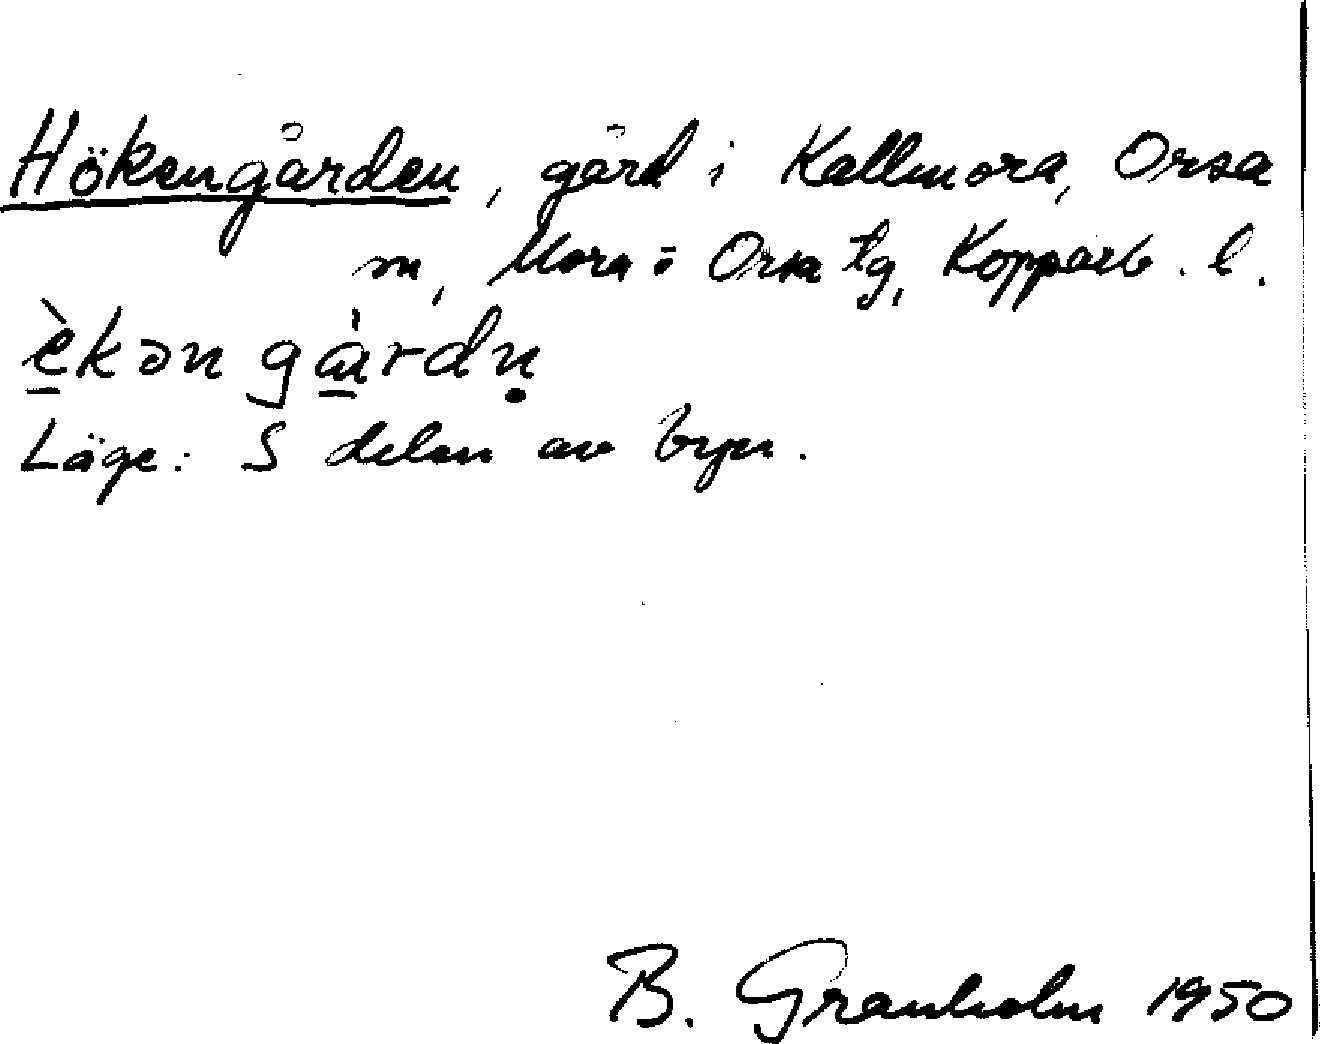 Hökengården, gård i Kallmora, Orsa
m, Mora o Orsa tg, Kopparb. l.
è̱kən gà̱rdṇ
Läge: S delen av byn.
B. Granholm 1950